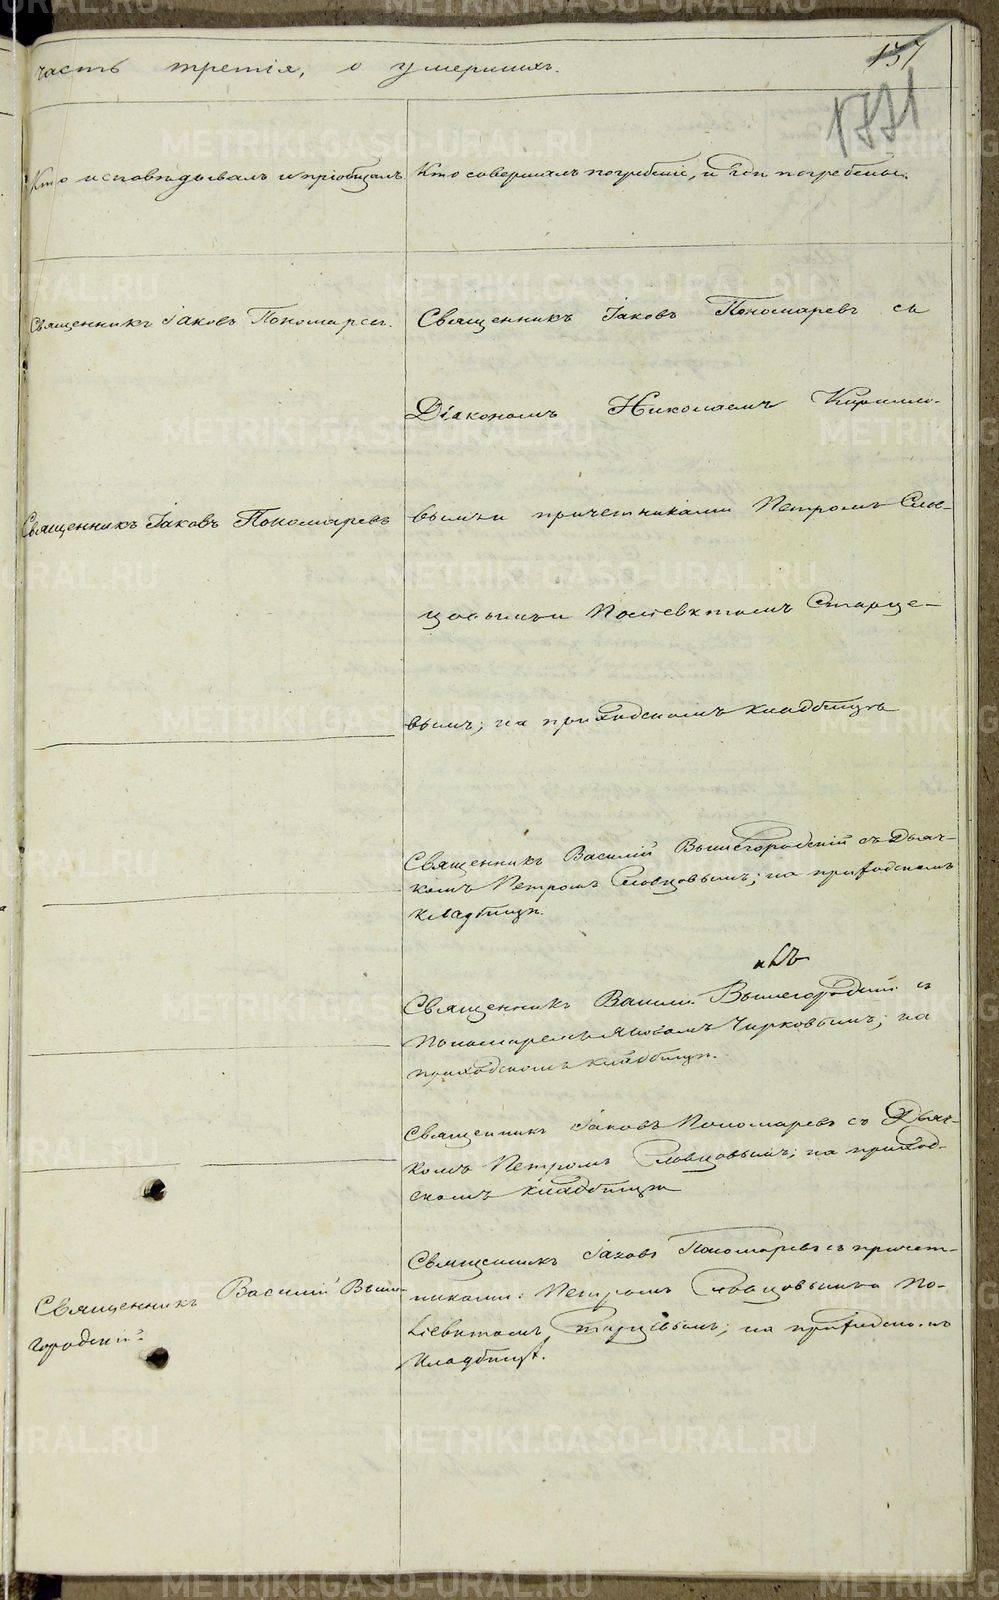 часть третія, о умершихъ.
137
1771
Кто исповѣдывалъ и пріобщалъ
Кто совершалъ погребеніе, и гдѣ погребены.
Священникъ Іаковъ Пономаревъ.
Священникъ Іаковъ Пономаревъ съ
Діакономъ Николаемъ Кирилло-
Священникъ Іаковъ Пономаревъ
вымъ и причетниками Петромъ Слов-
цовымъ и Поліевктомъ Старце-
вымъ; на приходскомъ кладбищѣ
Священникъ Василій Вышегородскій съ Дьяч-
комъ Петромъ Словцовымъ; на приходскомъ
кладбищѣ.
Священникъ Василій Вышегородскій съ
Пономаремъ Яковомъ Чирковымъ; на
приходскомъ кладбищѣ.
Священникъ Іаковъ Пономаревъ съ Дьяч-
комъ Петромъ Словцовымъ; на приход-
скомъ кладбищѣ
Священникъ Іаковъ Пономаревъ съ причет-
никами: Петромъ Словцовымъ и По-
ліевктомъ Старцевымъ; на приходскомъ
кладбищѣ.
Священникъ Василій Выше-
городскій
METRIKI.GASO-URAL.RU